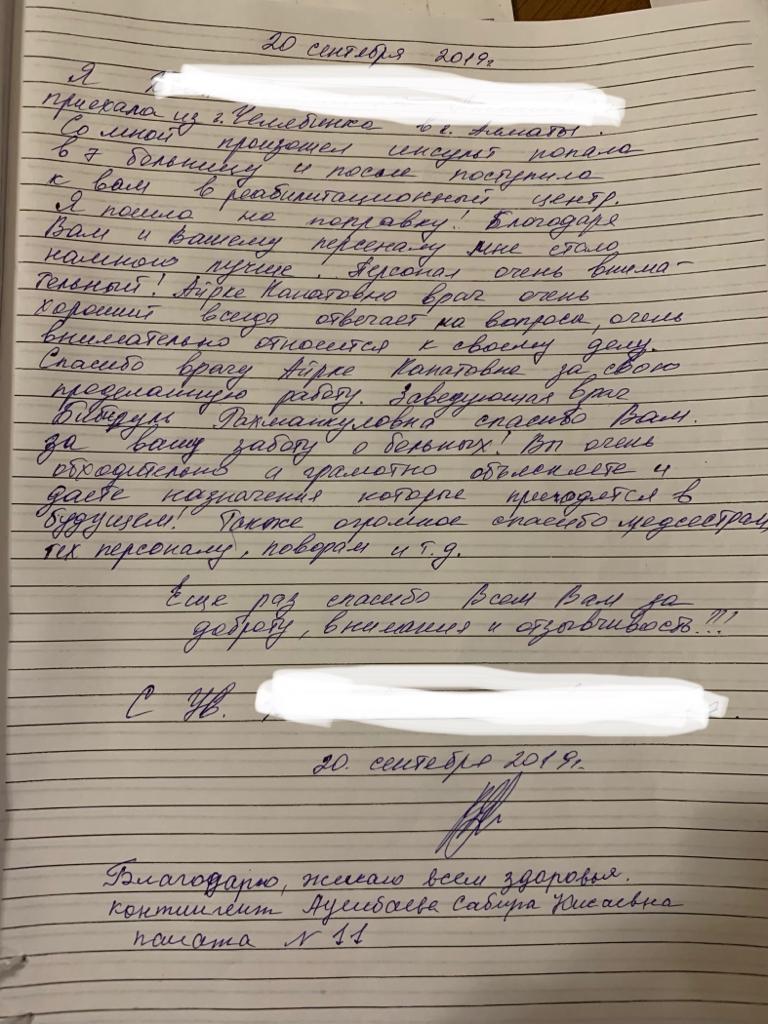 20 сентября 2019г.
Я
приехала из г. Челябинка в г. Алматы.
Со мной произошел инсульт попала
в 7 больницу и после поступила
к вам в реабилитационный центр.
Я пошла на поправку! Благодаря
Вам и Вашему персоналу мне стало
намного лучше. Персонал очень внима-
тельный! Айрке Канатовна врач очень
хороший всегда отвечает на вопросы, очень
внимательно относится к своему делу.
Спасибо врачу Айрке Канатовне за свою
проделанную работу. Заведующая врач
Бибигуль Рахманкуловна спасибо Вам.
за вашу заботу о больных! Вы очень
обходительно и грамотно объясняете и
даете назначения которые пригодятся в
будущем! Также огромное спасибо медсестрам,
тех персоналу, поворам и т.д.
Еще раз спасибо Всем Вам за
доброту, внимания и отзывчивость!!!
С Ув.
20. сентября 2019г.
Благодарю, желаю всем здоровья.
контингент Сабира
палата N 11